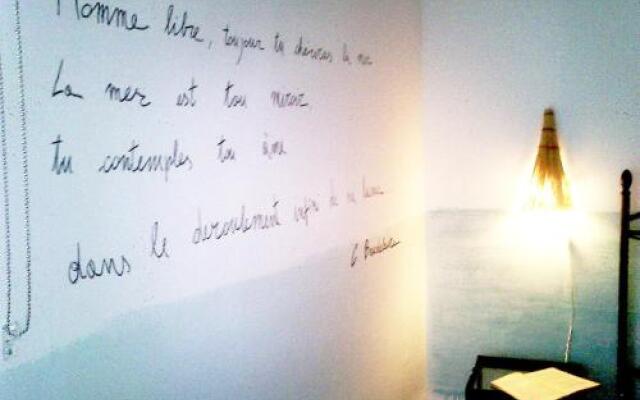 Homme libre, toujour tu chériras la mer
La mer est ton miroir,
tu contemples ton âme
dans le déroulement infini de sa lame
C Baudelaire